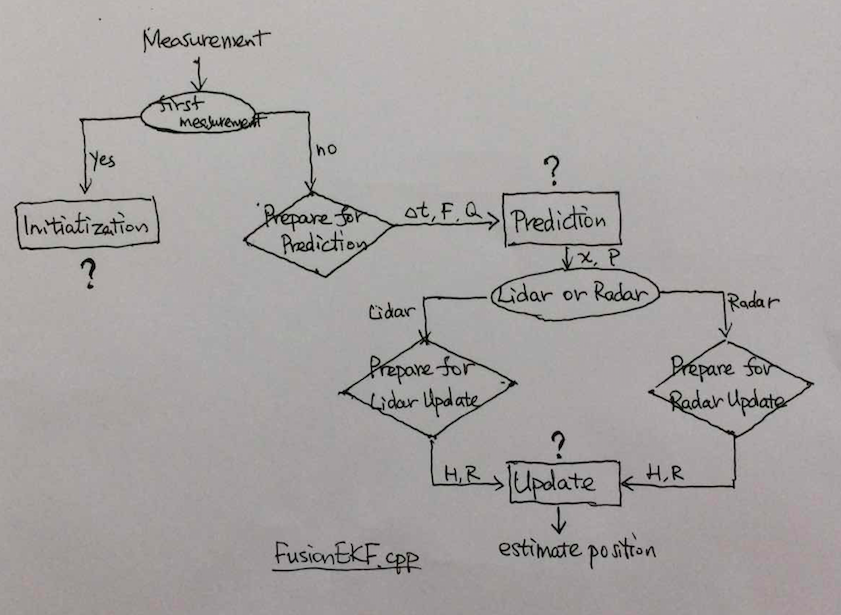 Measurement
first
measurement
Yes
no
Initiatization
?
Prepare for
Prediction
Δt, F, Q
?
Prediction
x, P
Lidar or Radar
Lidar
Radar
Prepare for
Lidar Update
Prepare for
Radar Update
H, R
?
Update
H, R
estimate position
FusionEKF.cpp